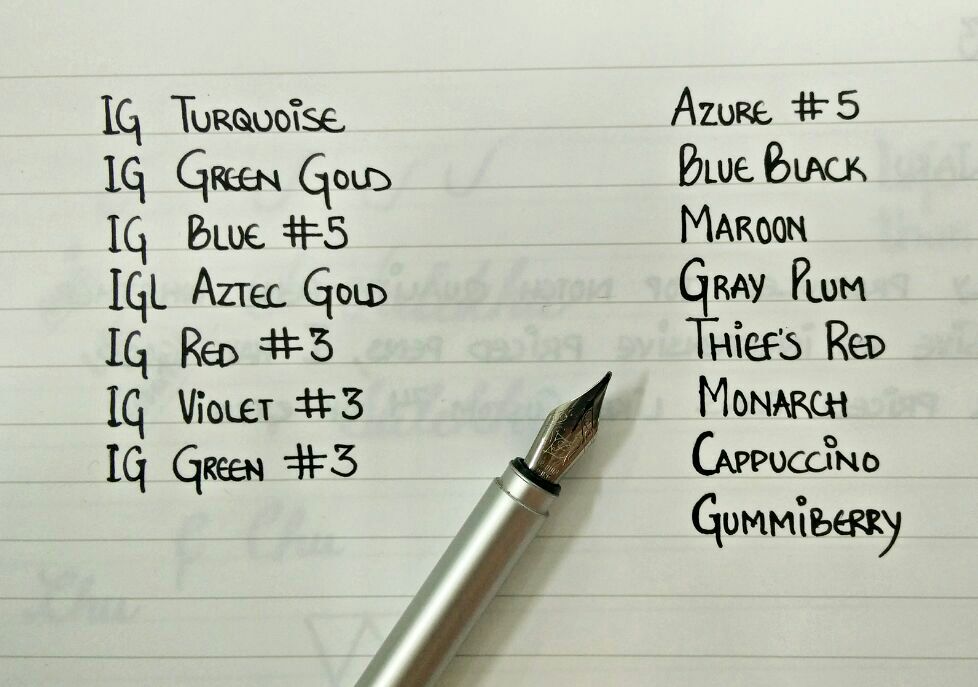 IG Turquoise
IG Green Gold
IG Blue #5
IGL Aztec Gold
IG Red #3
IG Violet #3
IG Green #3
Azure #5
Blue Black
Maroon
Gray Plum
Thief's Red
Monarch
Cappuccino
Gummiberry